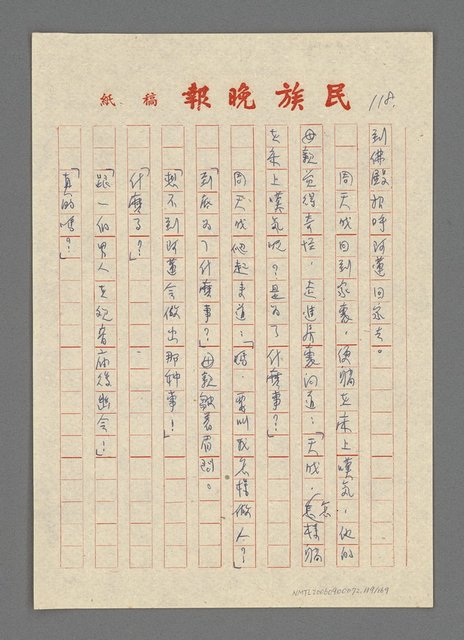 民族晚報 稿紙
118.
到佛殿招呼阿蓮回家去。
周天成回到家裏，便躺在床上嘆氣，他的
母親覺得奇怪，走進房裏问道：「天成，怎怎樣躺
在床上嘆氣呢？是為了什麼事？」
周天成他起来道：「媽，要叫我怎樣做人？」
「到底为了什麼事？」母親皺着眉問。
「想不到阿蓮会做出那种事！」
「什麼事？」
「跟一個男人在觀音庙後幽会！」
「真的嗎？」
NMTL20050900072.119/169